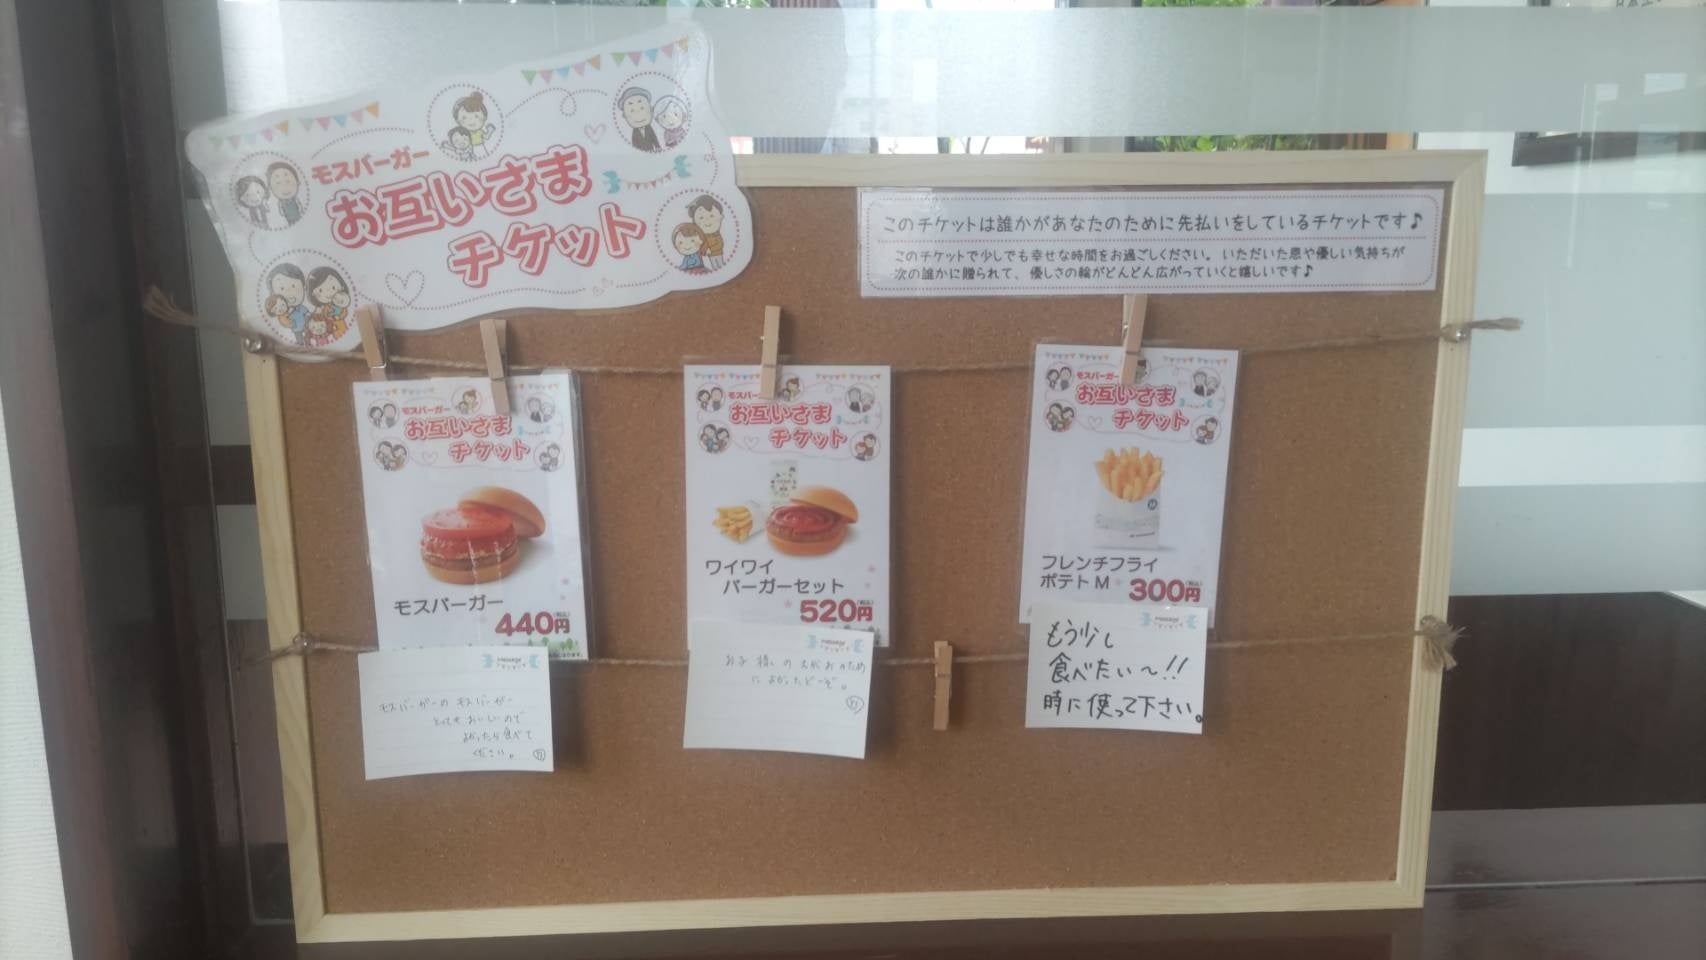 モスバーガー
お互いさま
チケット
このチケットは誰かがあなたのために先払いをしているチケットです♪
このチケットで少しでも幸せな時間をお過ごしください。いただいた恩や優しい気持ちが
次の誰かに贈られて、優しさの輪がどんどん広がっていくと嬉しいです♪
モスバーガー
お互いさま
チケット
モスバーガー
440円(税込)
モスバーガーのモスバーガー
とってもおいしいので
よかったら食べて
ください。
モスバーガー
お互いさま
チケット
ワイワイ
バーガーセット
520円(税込)
message
お子様のえがおのため
によかったどーぞ。
モスバーガー
お互いさま
チケット
フレンチフライ
ポテトM 300円(税込)
message
もう少し
食べたい〜!!
時に使って下さい。